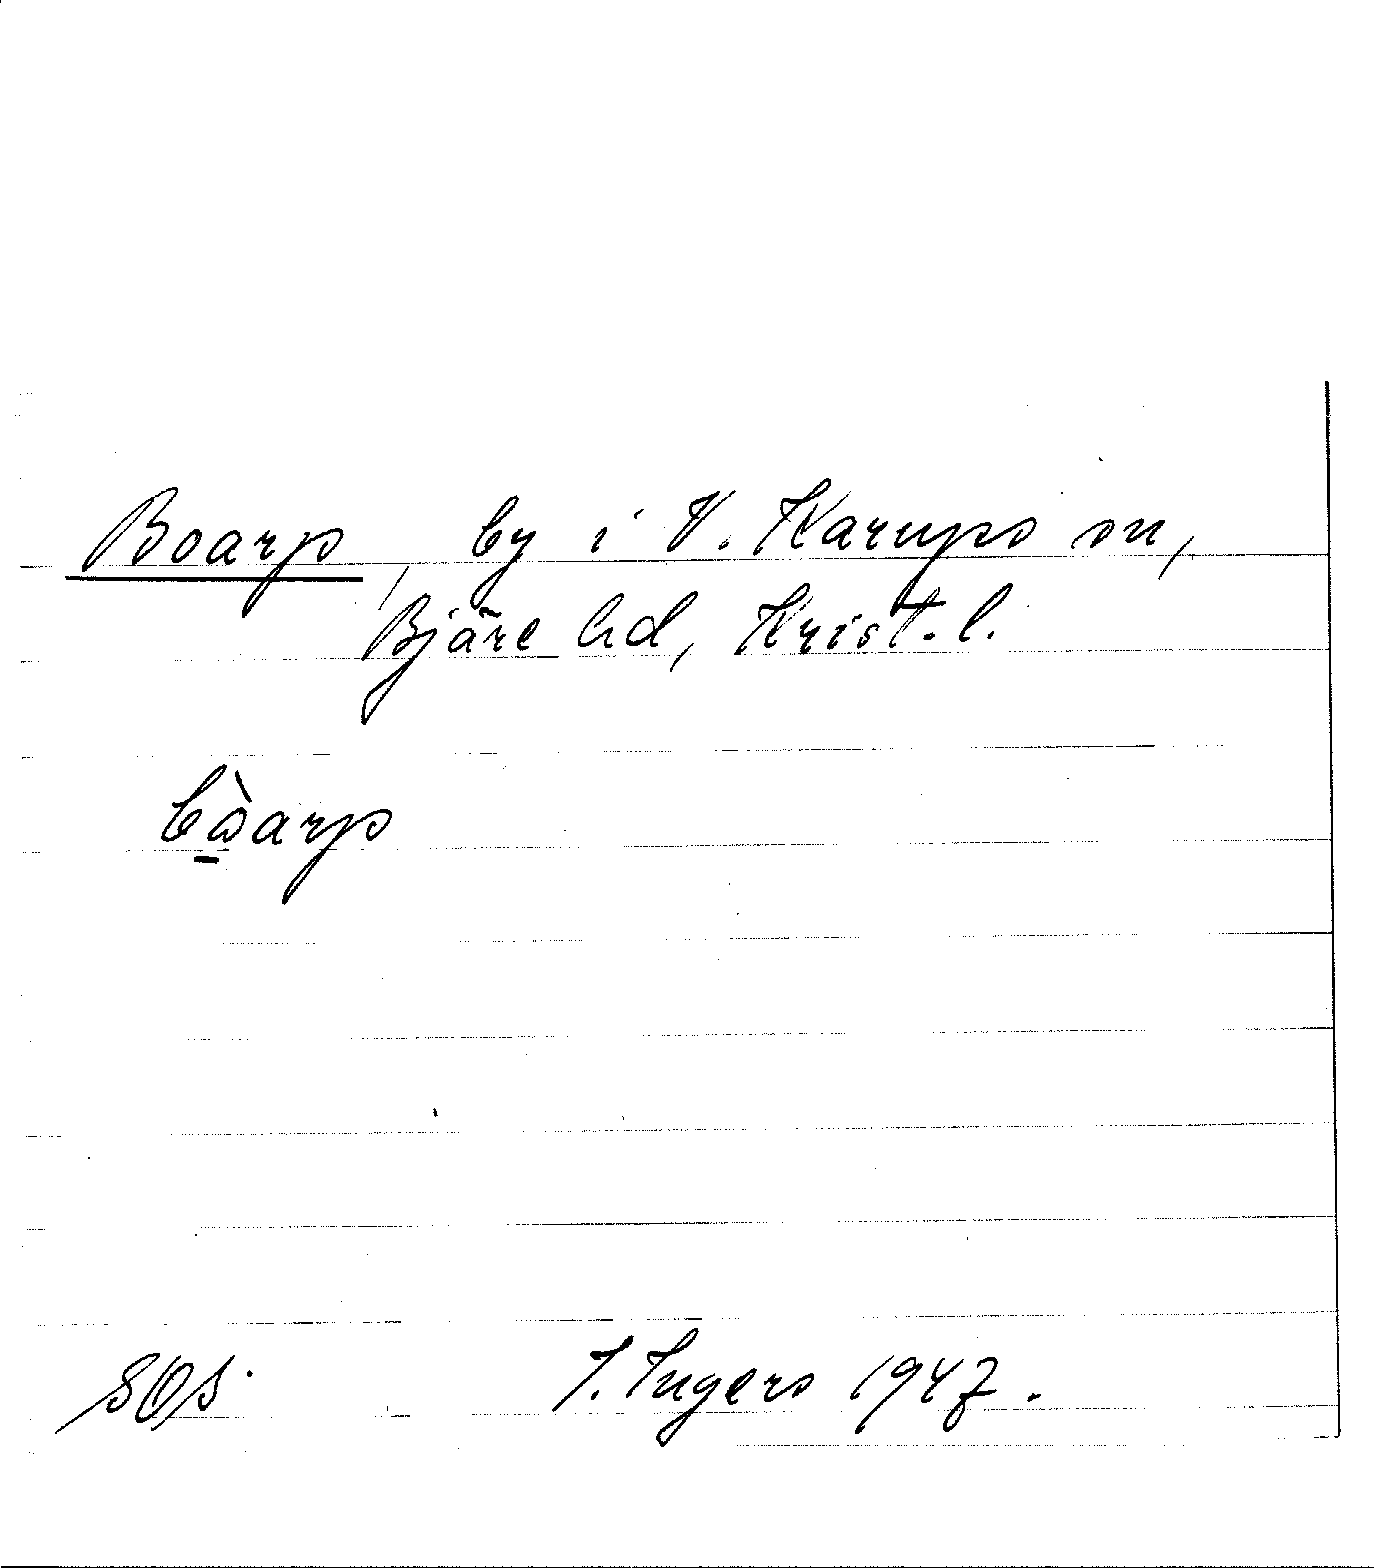 Boarp, by i V. Karups sn,
Bjäre hd, Krist. l.
bò̠arp
SOS. I. Ingers 1947.